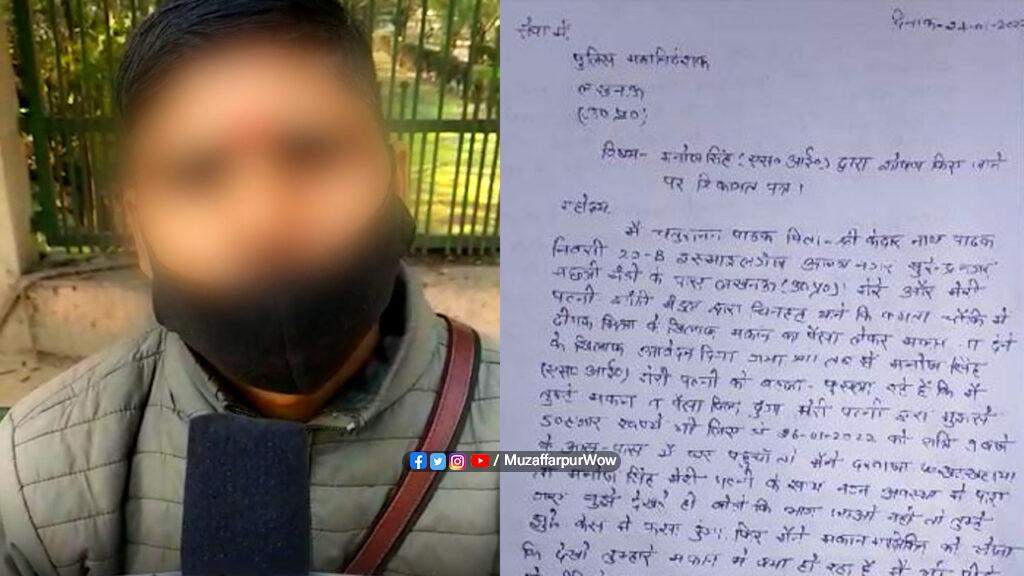 सेवा में,
दिनांक-24-01-202
पुलिस महानिदेशक
लखनऊ
(उ०प्र०)
विषय- मनोज सिंह (एस० आई०) द्वारा शोषण किए जाने
पर शिकायत पत्र।
महोदय,
मैं पाठक पिता- श्री केदार नाथ पाठक
निवासी 22-B इस्माइलगंज नगर
मंडी के पास लखनऊ (उ०प्र०) मेरे और मेरी
पत्नी द्वारा चिनहट थाने कि चौकी में
दीपक मिश्रा के खिलाफ मकान का पैसा लेकर मकान न देने
के खिलाफ आवेदन दिया गया था तब से मनोज सिंह
(एस० आई०) मेरी पत्नी को रहे हैं कि मैं
तुम्हें मकान व पैसा दिला दुंगा मेरी पत्नी द्वारा मुझसे
50 हजार रूपये भी लिए थे 06-01-2022 को रात्रि 9 बजे
के आस-पास में घर पहुँचा तो मैंने दरवाजा खटखटाया
तो मनोज सिंह मेरी पत्नी के साथ नग्न अवस्था में पाया
मुझे देखते ही बोले कि भाग जाओ नहीं तो तुम्हें
झूठे केस में फसा दुंगा। फिर मैंने मकान मालिक को
कि देखो तुम्हारे मकान में क्या हो रहा है मैं
/ MuzaffarpurWow